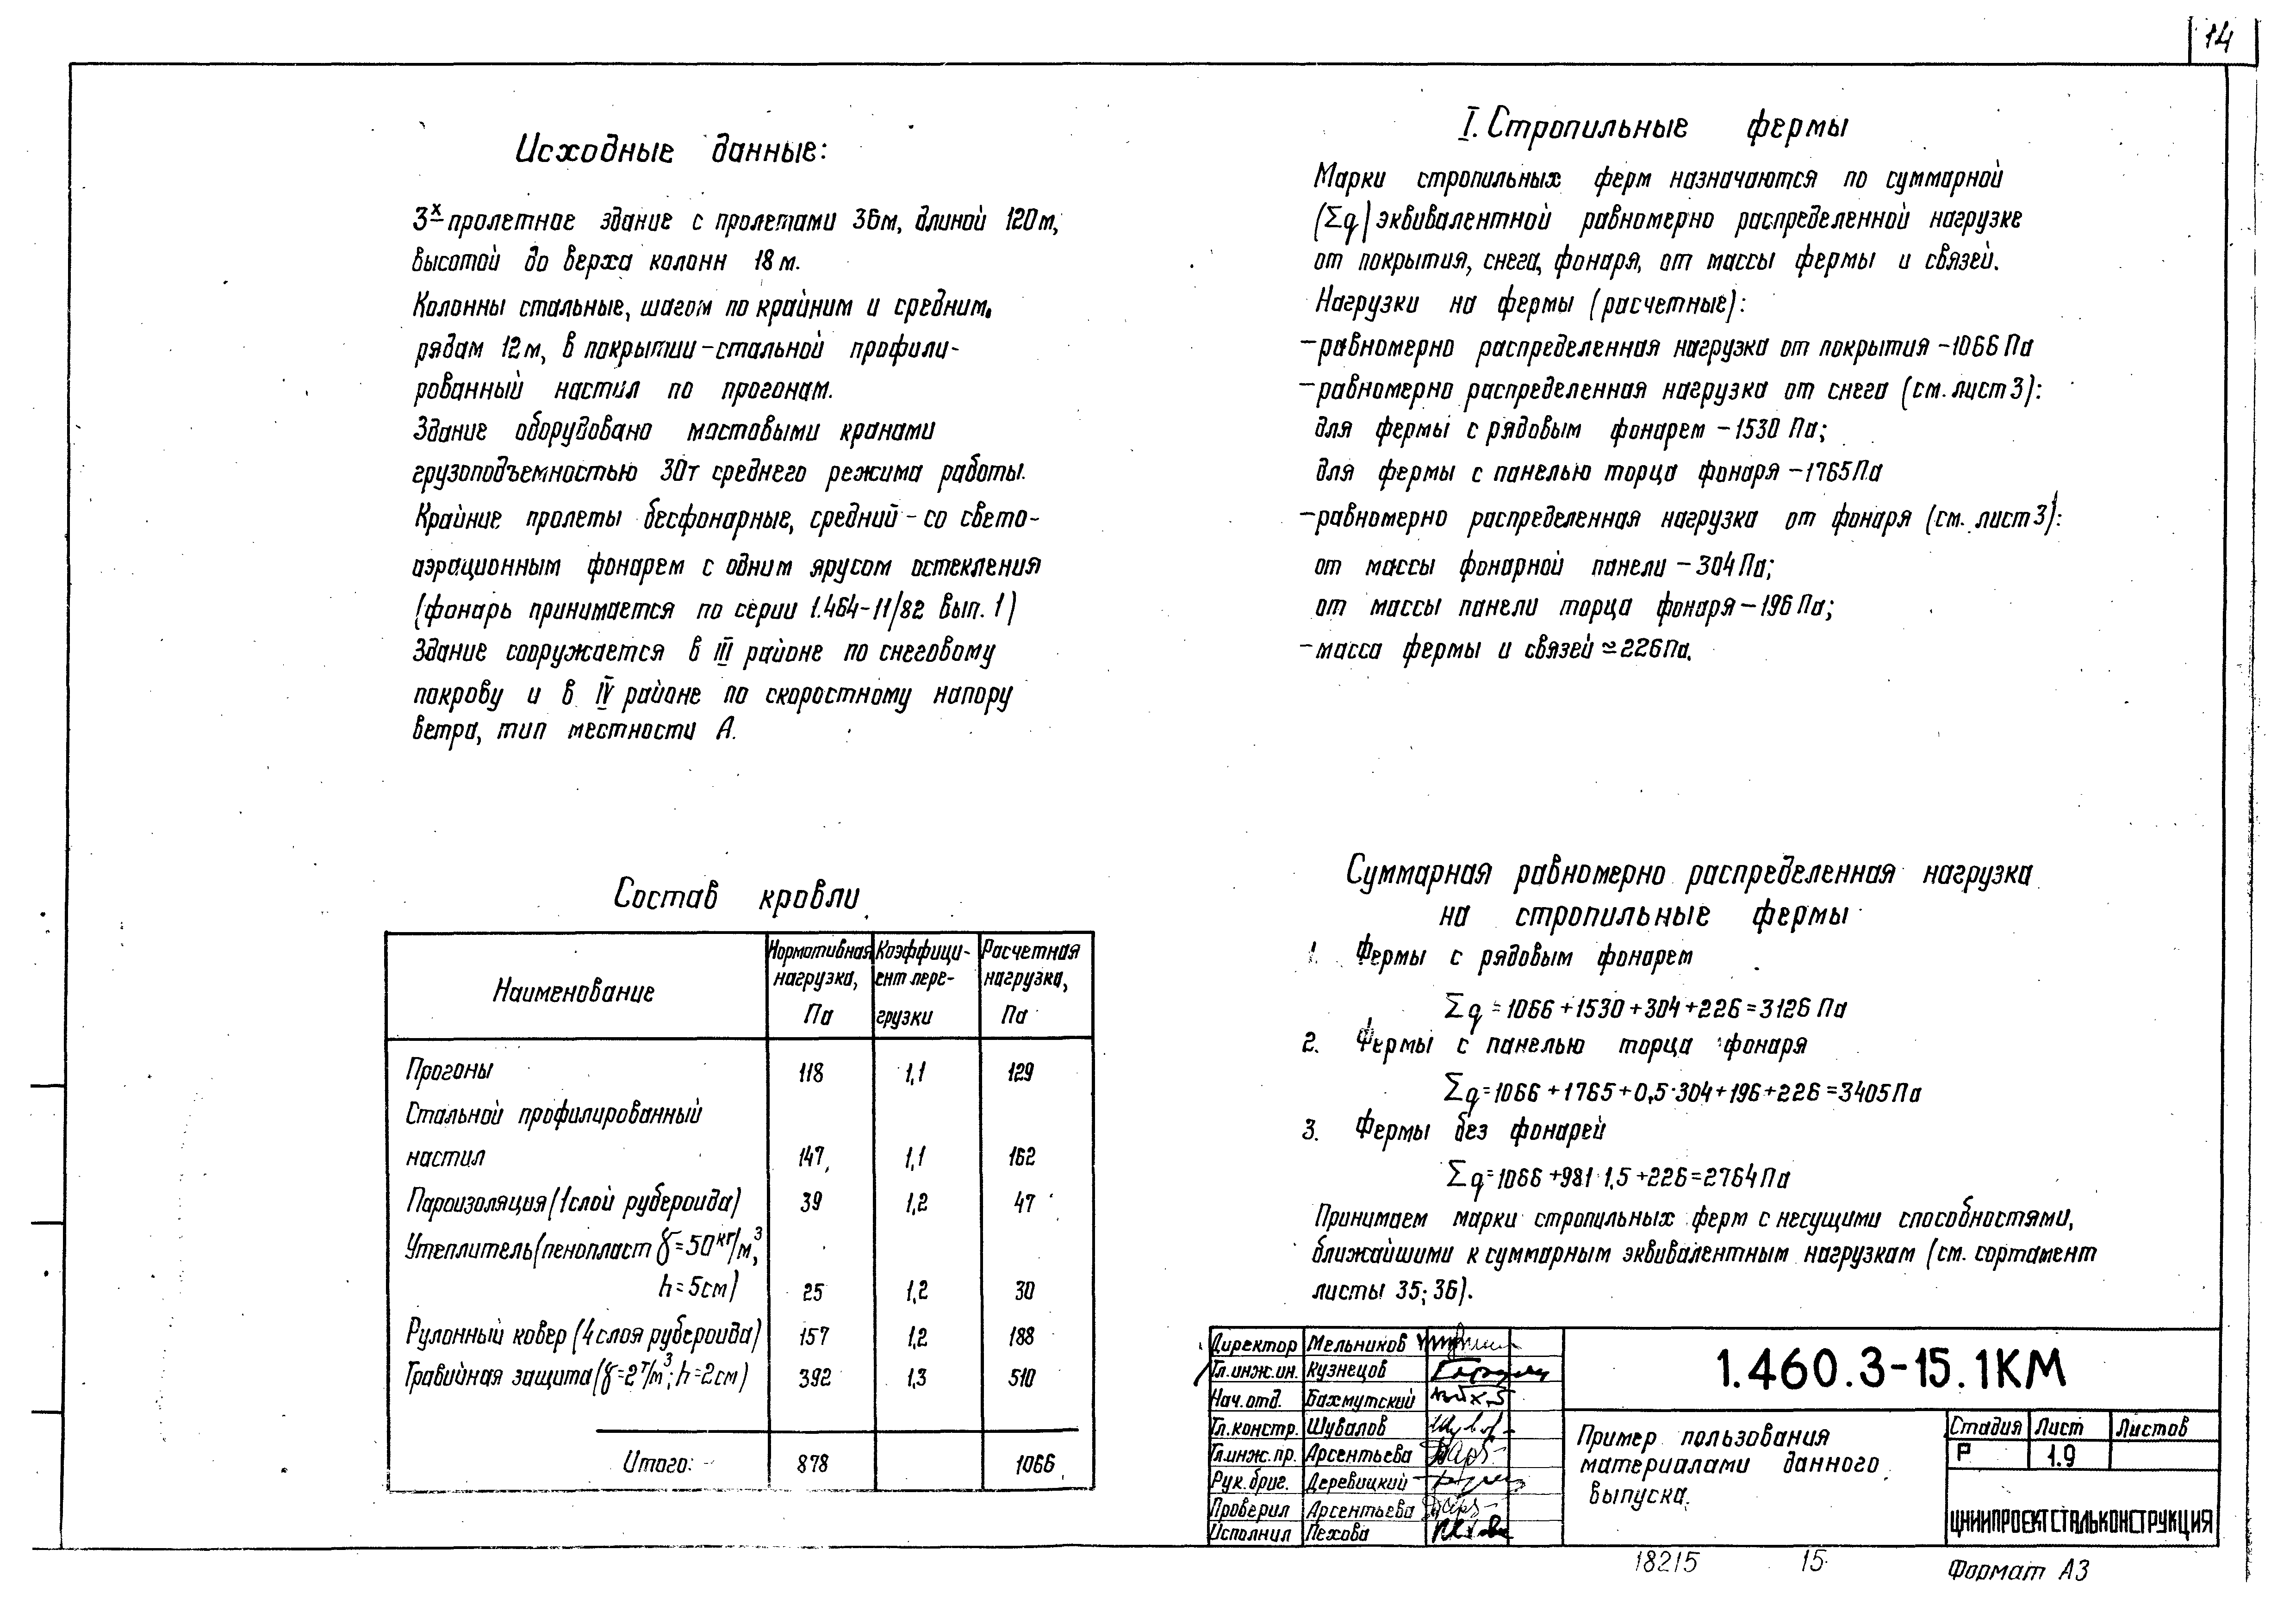 14
Исходные данные:
3х пролетное здание с пролетами 36м, длиной 120м,
высотой до верха колонн 18 м.
Колонны стальные, шагом по крайним и средним
рядам 12м, в покрытии - стальной профили-
рованный настил по прогонам.
Здание оборудовано мостовыми кранами
грузоподъемностью 30т среднего режима работы.
Крайние пролеты бесфонарные, средний - со свето-
аэрационным фонарем с одним ярусом остекления
(фонарь принимается по серии 1.464-11/82 вып. 1)
Здание сооружается в III районе по снеговому
покрову и в IV районе по скоростному напору
ветра, тип местности А.
Состав кровли
Наименование | Нормативная нагрузка, Па | Коэффици-ент пере-грузки | Расчетная нагрузка, Па
Прогоны 118 1,1 129
Стальной профилированный
настил 147 1,1 162
Пароизоляция (1слой рубероида) 39 1,2 47
Утеплитель (пенопласт γ=50 кг/м³,
h=5см) 25 1,2 30
Рулонный ковер (4 слоя рубероида) 157 1,2 188
Гравийная защита (γ=2т/м³; h=2см) 392 1,3 510
Итого: 878 1066
I. Стропильные фермы
Марки стропильных ферм назначаются по суммарной
(Σq) эквивалентной равномерно распределенной нагрузке
от покрытия, снега, фонаря, от массы фермы и связей.
Нагрузки на фермы (расчетные):
-равномерно распределенная нагрузка от покрытия -1066 Па
-равномерно распределенная нагрузка от снега (см. лист 3):
для фермы с рядовым фонарем - 1530 Па;
для фермы с панелью торца фонаря -1765Па
-равномерно распределенная нагрузка от фонаря (см. лист 3):
от массы фонарной панели - 304 Па;
от массы панели торца фонаря - 196 Па;
-масса фермы и связей ≃226Па.
Суммарная равномерно распределенная нагрузка
на стропильные фермы
1. Фермы с рядовым фонарем
Σq = 1066 +1530 +304 +226 = 3126 Па
2. Фермы с панелью торца фонаря
Σq=1066 +1765+0,5·304+196+226=3405Па
3. Фермы без фонарей
Σq=1066 +981·1,5 +226=2764Па
Принимаем марки стропильных ферм с несущими способностями,
ближайшими к суммарным эквивалентным нагрузкам (см. сортамент
листы 35; 36).
Директор Мельников
Гл.инж.ин. Кузнецов
Нач.отд. Бахмутский
Гл.констр. Шувалов
Гл.инж.пр. Арсентьева
Рук.бриг. Деревицкий
Проверил Арсентьева
Исполнил Пехова
1.460.3-15.1КМ
Пример пользования
материалами данного
выпуска.
Стадия Лист Листов
Р 1.9
ЦНИИПРОЕКТСТАЛЬКОНСТРУКЦИЯ
18215 15
Формат А3